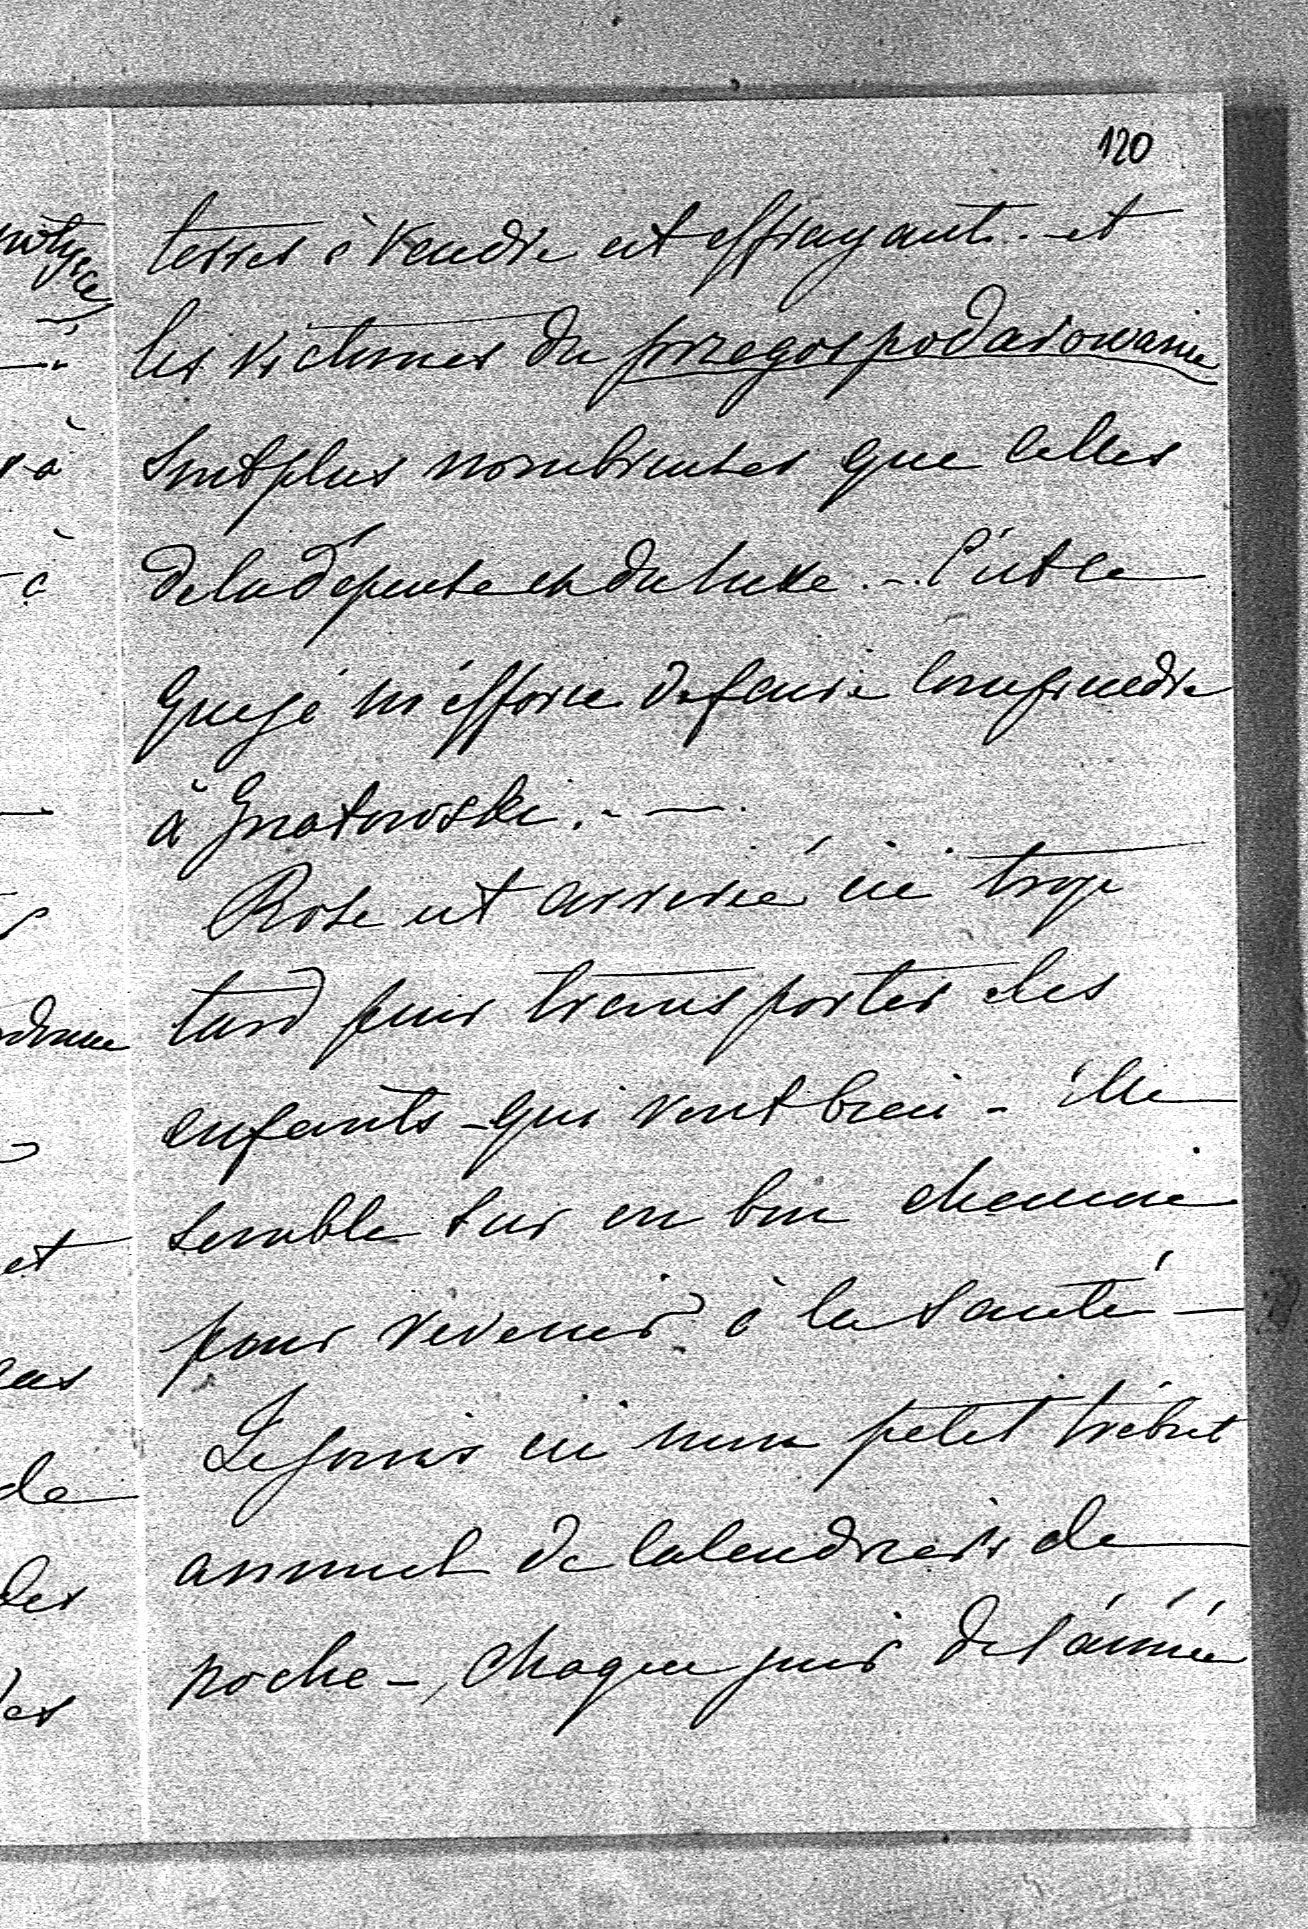 120
terres à vendre est effrayant. et
les victimes du przegospodarowanie
sont plus nombreuses que celles
de la dépense et du luxe. - C'est ce
que je m'éfforce de faire comprendre
à Gnatowski. -
Rose est arrivée ici trop
tard pour transporter les
enfants - qui vont bien - Elle
semble sur un bon chemin
pour revenir à la santé -
Je joins ici mon petit tribut
annuel de calendriers de
poche -, chaque jour de l'année